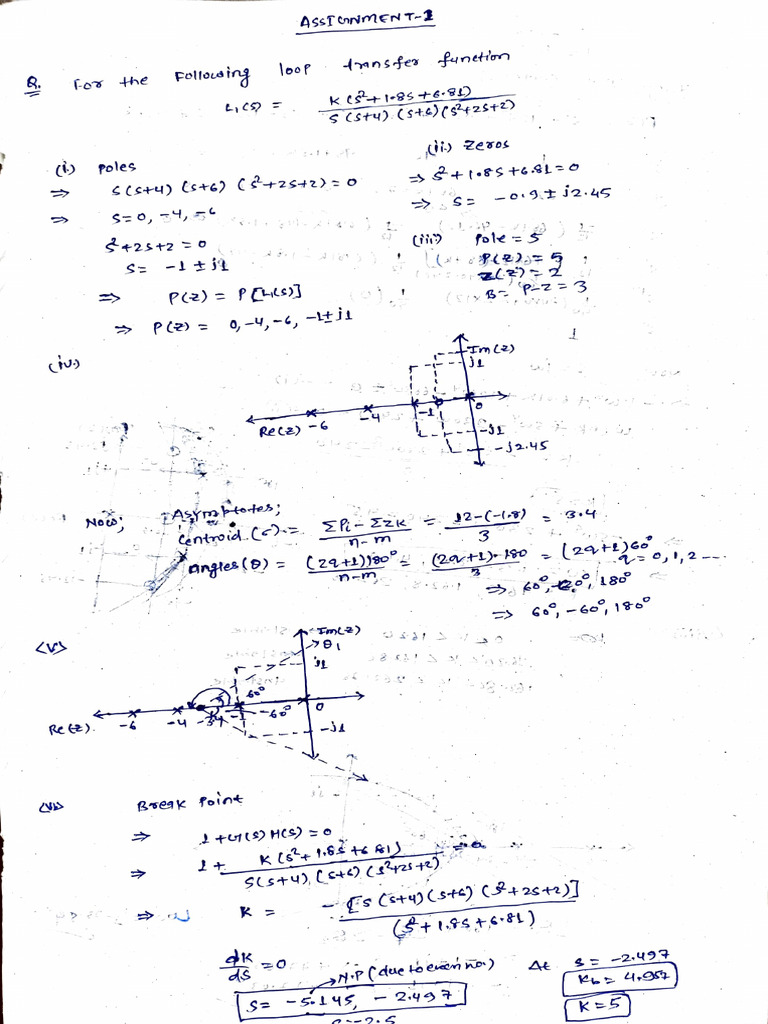 ASSIGNMENT-1
Q. For the Following loop transfer function
L₁(s) = K(s²+1.8s+6.81) / s(s+4)(s+6)(s²+2s+2)
(i) Poles
⇒ s(s+4)(s+6)(s²+2s+2)=0
⇒ s=0, -4, -6
s²+2s+2=0
s= -1±j1
⇒ P(z) = P[L₁(s)]
⇒ P(z) = 0,-4,-6, -1±j1
(ii) Zeros
⇒ s²+1.8s+6.81=0
⇒ s= -0.9±j2.45
(iii) Pole = 5
P(z)=5
z(z)=2
B= P-z=3
(iv)
Im(z)
j1
Re(z) -6 -4 -1 0
-j1
-j2.45
Now; Asymptotes;
Centroid (c) = ΣPi - Σzk / n-m = 12-(-1.8) / 3 = 3.4
Angles(θ) = (2q+1)180° / n-m = (2q+1)·180 / 3 = (2q+1)60°
q=0,1,2--
⇒ 60°, 180°
⇒ 60°, -60°, 180°
<v>
Im(z)
θ₁
j1
60°
Re(z) -6 -4 -1 -60° 0
-j1
<vi> Break Point
⇒ 1+G(s)H(s)=0
⇒ 1+ K(s²+1.8s+6.81) / s(s+4)(s+6)(s²+2s+2) =0
⇒ K = -[s(s+4)(s+6)(s²+2s+2)] / (s²+1.8s+6.81)
dK/ds =0
N.P (due to even no.)
s= -5.145, -2.497
At s= -2.497
Kb= 4.957
K=5